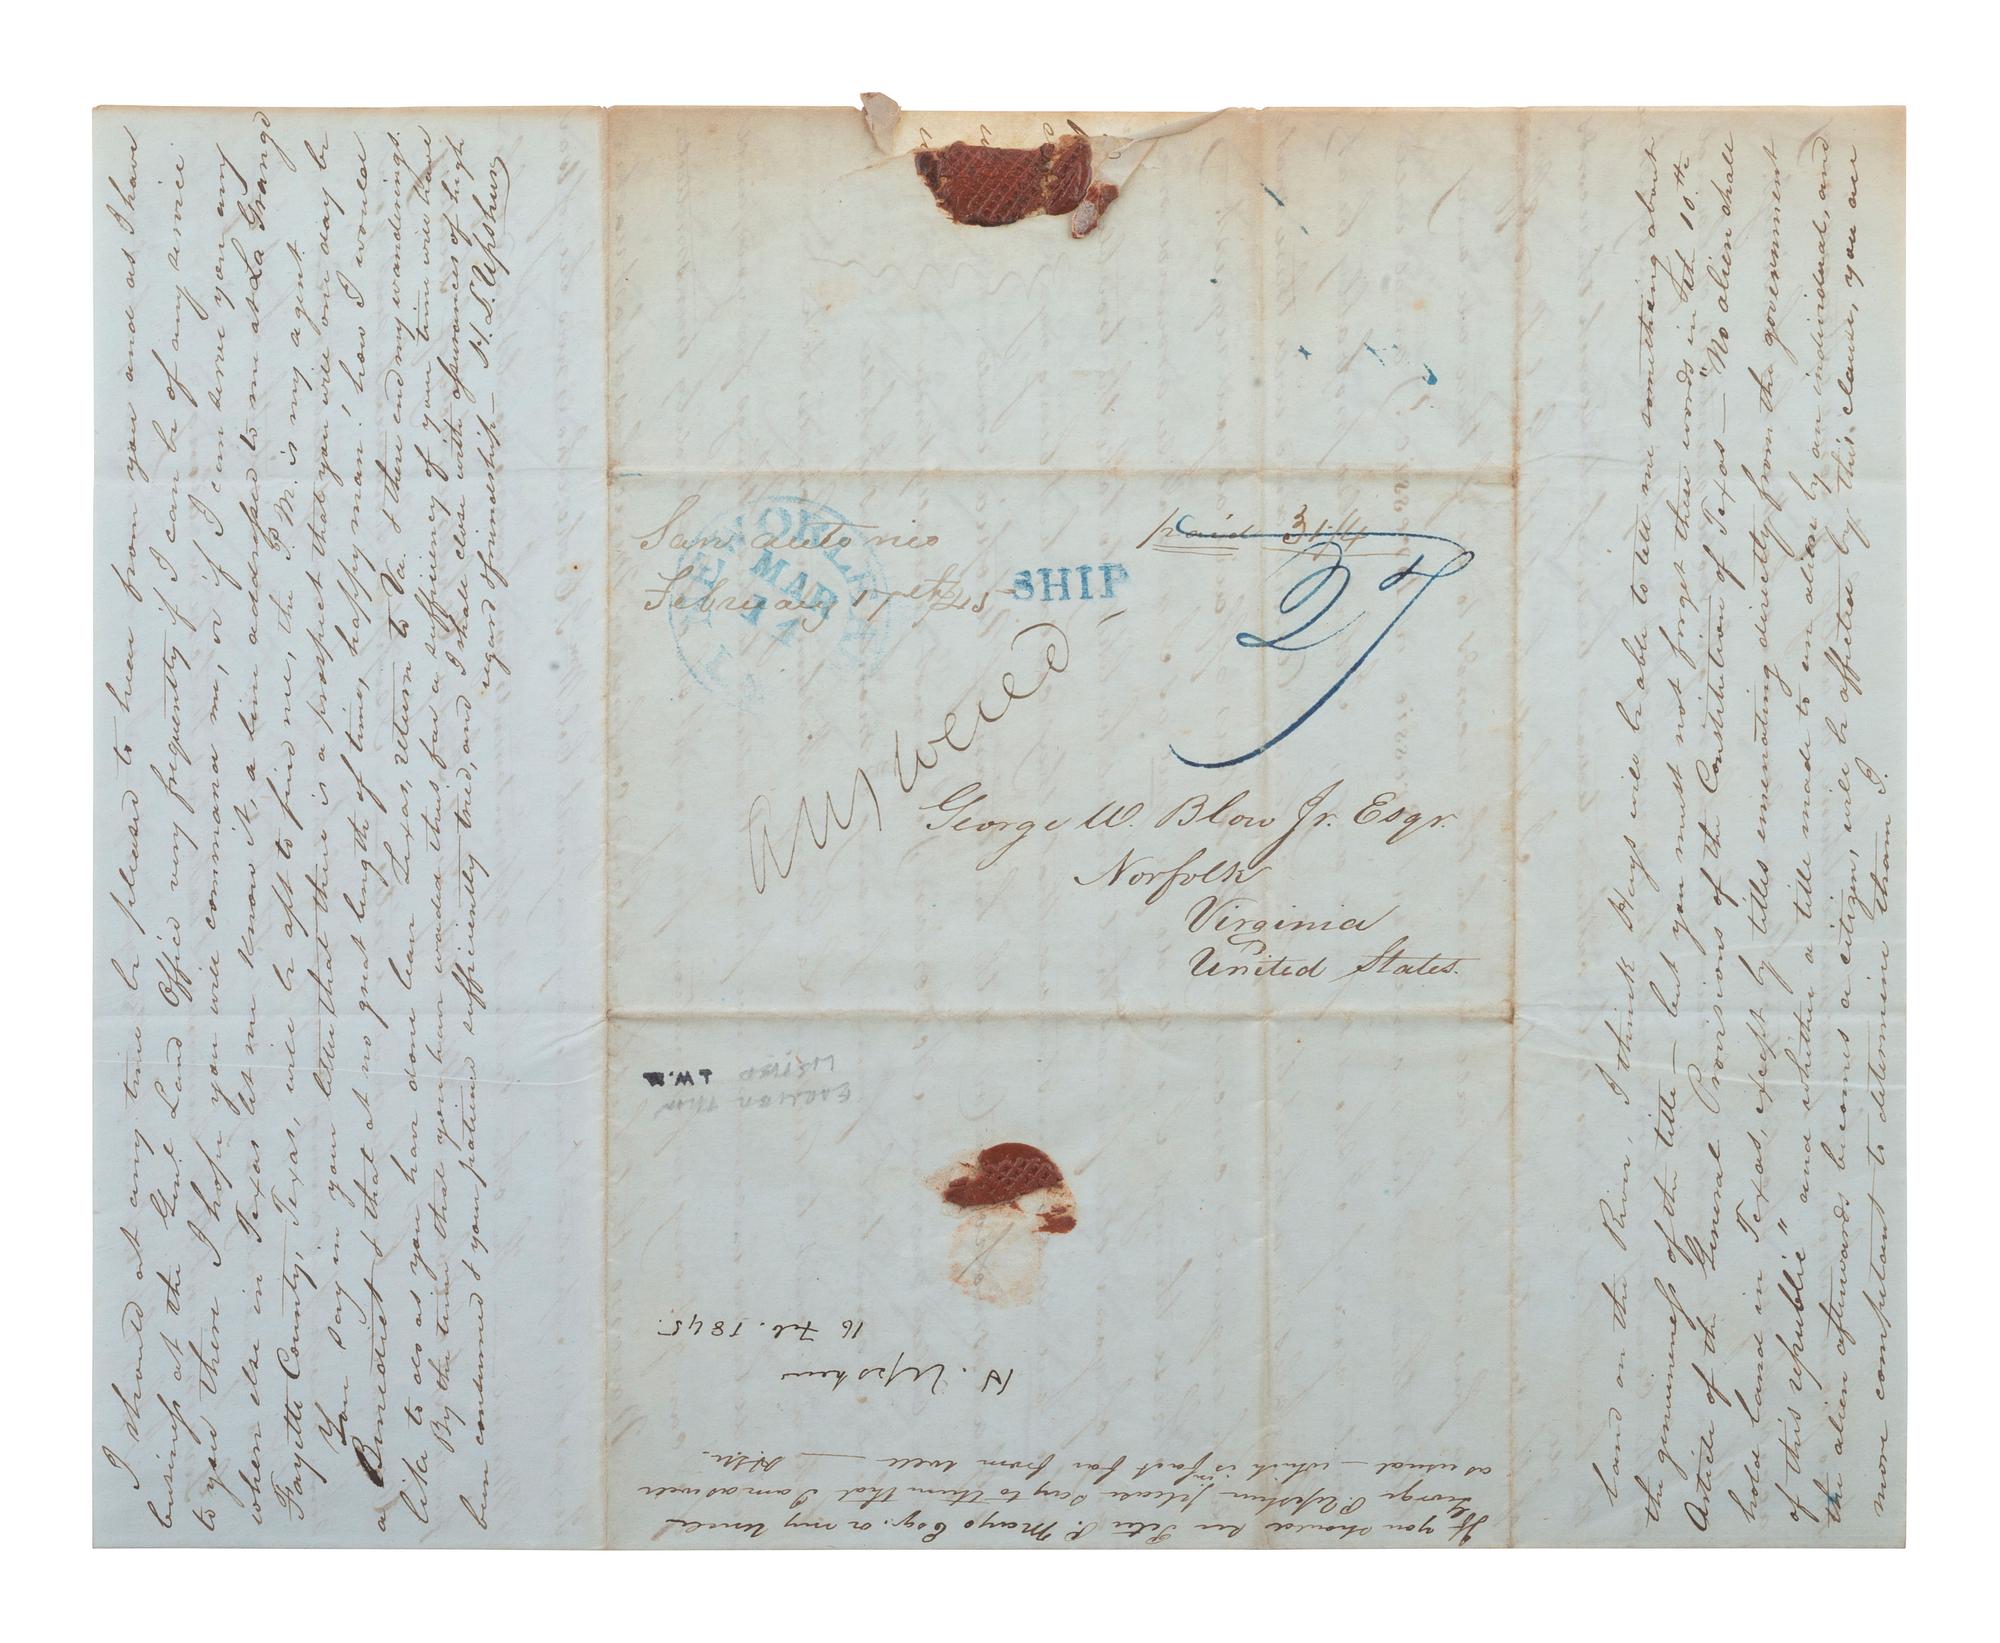 San Antonio
February 17th 45
paid 31/4
NEW ORLEANS
MAR
11
SHIP
27
answered
George W. Blow Jr. Esqr.
Norfolk
Virginia
United States.
land on the River, I think Hays will be able to tell me something about
the genuineness of the title — but you must not forget these words in the 10.th
Article of the General Provisions of the Constitution of Texas — "No alien shall
hold land in Texas, except by titles emenating directly from the government
of this republic" and whether a title made to an alien by an individual, and
the alien afterwards becomes a citizen, will be affected by this clause, you are
more competent to determine than I.
I should at any time be pleased to hear from you and as I have
business at the Genl Land Office very frequently if I can be of any service
to you there I hope you will command me, or if I can serve you any
where else in Texas let me know it, a line addressed to me at La Grange
Fayette County, Texas, will be apt to find me, the P.M. is my agent.
You say in your letter that there is a prospect that you will one day be
a Benedict & that at no great length of time, happy man! how I would
like to do as you have done lean Texas, return to Va. & there end my wanderings.
By the time that you have waded thus far a sufficiency of your time will have
been consumed & your patience sufficiently tried, and I shall close with assurances of high
regard & friendship — H. L. Upshur
H. Upshur
16 Feb. 1845.
If you should see Peter P. Mayo Esq. or my Uncle
George P. Upshur please say to them that I am as well
as usual — which is in fact far from well —